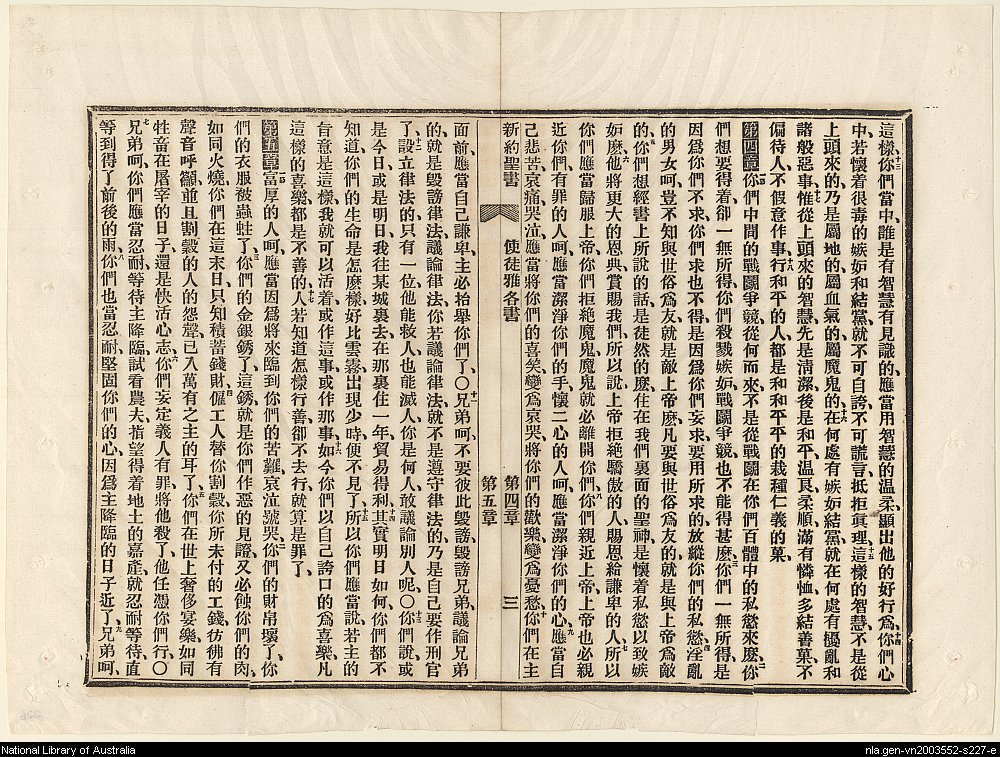 這樣、十三你們當中、誰是有智慧有見識的、應當用智慧的温柔、顯出他的好行爲、十四你們心
中、若懷着很毒的嫉妬、和結黨、就不可自誇、不可謊言、抵拒眞理、十五這樣的智慧、不是從
上頭來的、乃是屬地的、屬血氣的、屬魔鬼的、十六在何處有嫉妬結黨、就在何處有擾亂和
諸般惡事、十七惟從上頭來的智慧、先是清潔、後是和平、温良、柔順、滿有憐恤、多結善菓、不
偏待人、不假意作事、十八行和平的人、都是和和平平的栽種仁義的菓、
第四章一你們中間的戰鬭爭競、從何而來、不是從戰鬭在你們百體中的私慾來麽、二你
們想要得着、卻一無所得、你們殺戮嫉妬戰鬭爭競、也不能得甚麽、你們一無所得、是
因爲你們不求、三你們求也不得、是因爲你們妄求、要用所求的、放縱你們的私慾、四淫亂
的男女呵、豈不知與世俗爲友、就是敵上帝麽、凡要與世俗爲友的、就是與上帝爲敵
的、五你們想經書上所說的話、是徒然的麽、住在我們裏面的聖神、是懷着私慾以致嫉
妬麽、六他將更大的恩典、賞賜我們、所以說、上帝拒絶驕傲的人、賜恩給謙卑的人、七所以
你們應當歸服上帝、你們拒絶魔鬼、魔鬼就必離開你們、八你們親近上帝、上帝也必親
近你們、有罪的人呵、應當潔淨你們的手、懷二心的人呵、應當潔淨你們的心、九應當自
己悲苦、哀痛、哭泣、應當將你們的喜笑、變爲哀哭、將你們的歡樂、變爲憂愁、十你們在主
新約聖書 使徒雅各書 第四章 第五章 三
面前、應當自己謙卑、主必抬舉你們了、〇十一兄弟呵、不要彼此毀謗、毀謗兄弟、議論兄弟
的、就是毀謗律法、議論律法、你若議論律法、就不是遵守律法的、乃是自己要作刑官
了、十二設立律法的、只有一位、他能救人、也能滅人、你是何人、敢議論別人呢、〇十三你們說、或
是今日、或是明日、我往某城裏去、在那裏住一年、貿易得利、十四其實明日如何、你們都不
知道、你們的生命是怎麽樣、好比雲霧、出現少時、便不見了、十五所以你們應當說、若主的
旨意是這樣、我就可以活着、或作這事、或作那事、十六如今你們以自己誇口的爲喜樂、凡
這樣的喜樂、都是不善的、十七人若知道怎樣行善、卻不去行、就算是罪了、
第五章一富厚的人呵、應當因爲將來臨到你們的苦難、哀泣號哭、二你們的財帛壞了、你
們的衣服被蟲蛀了、三你們的金銀銹了、這銹就是你們作惡的見證、又必蝕你們的肉、
如同火燒、你們在這末日、只知積蓄錢財、四僱工人替你割穀、你所未付的工錢、彷彿有
聲音呼籲、並且割穀的人的怨聲、已入萬有之主的耳了、五你們在世上奢侈宴樂、如同
牲音在屠宰的日子、還是快活心志、六你們妄定義人有罪、將他殺了、他任憑你們行、〇
七兄弟呵、你們應當忍耐、等待主降臨、試看農夫、指望得着地土的嘉產、就忍耐等待、直
等到得了前後的雨、八你們也當忍耐、堅固你們的心、因爲主降臨的日子近了、九兄弟呵、
National Library of Australia
nla.gen-vn2003552-s227-e